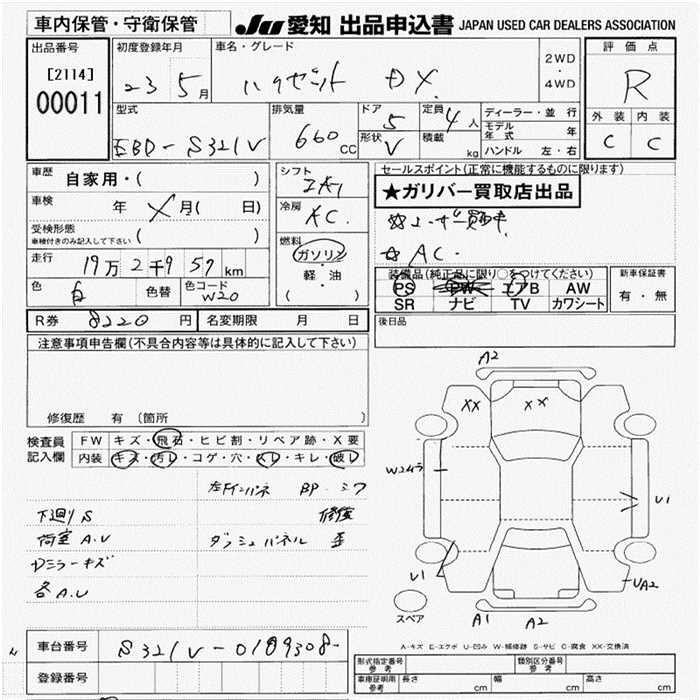 車内保管・守衛保管
JU 愛知 出品申込書 JAPAN USED CAR DEALERS ASSOCIATION
出品番号
[2114]
00011
初度登録年月
23 5月
車名・グレード
ハイゼット DX.
2WD
・
4WD
評価点
R
外装 内装
C C
型式
EBD-S321V
排気量
660 CC
ドア 5
形状 V
定員 4人
積載 kg
ディーラー・並 行
モデル年式 年
ハンドル 左・右
車歴 自家用・( )
車検 年 メ月( 日)
受検形態
車検付きのみ記入して下さい ( )
走行 19万2千9 57 km
色 白 色替
色コード W20
シフト
冷房 AC.
燃料
ガソリン
・
軽・油
( )
セールスポイント(正常に機能するものに限ります)
★ガリバー買取店出品
☆ユーザー買取車
☆ AC.
装備品(純正品に限り○をつけてください)
PS PW エアB AW
SR ナビ TV カワシート
新車保証書
有・無
R券 8220 円 名変期限 月 日
後日品
注意事項申告欄(不具合内容等は具体的に記入して下さい)
修復歴 有 (箇所 )
検査員記入欄
FW キズ・飛石・ヒビ割・リペア跡・X要
内装 キズ・汚レ・コゲ・穴・スレ・キレ・破レ
左Fインパネ BP-シワ
下廻りS 修復
荷室A.U ダッシュパネル 歪
Dミラーキズ
各A.U
A2
XX
XX
W2
U1
U1
UA2
A1
A2
スペア
A-キズ E-エクボ U-凹み W-補修跡 S-サビ C-腐食 XX-交換済
車台番号 S321V-0189308-
登録番号
形式指定番号
参考
類別区分番号
参考
車庫証明用
参考
長さ cm 幅 cm 高さ cm